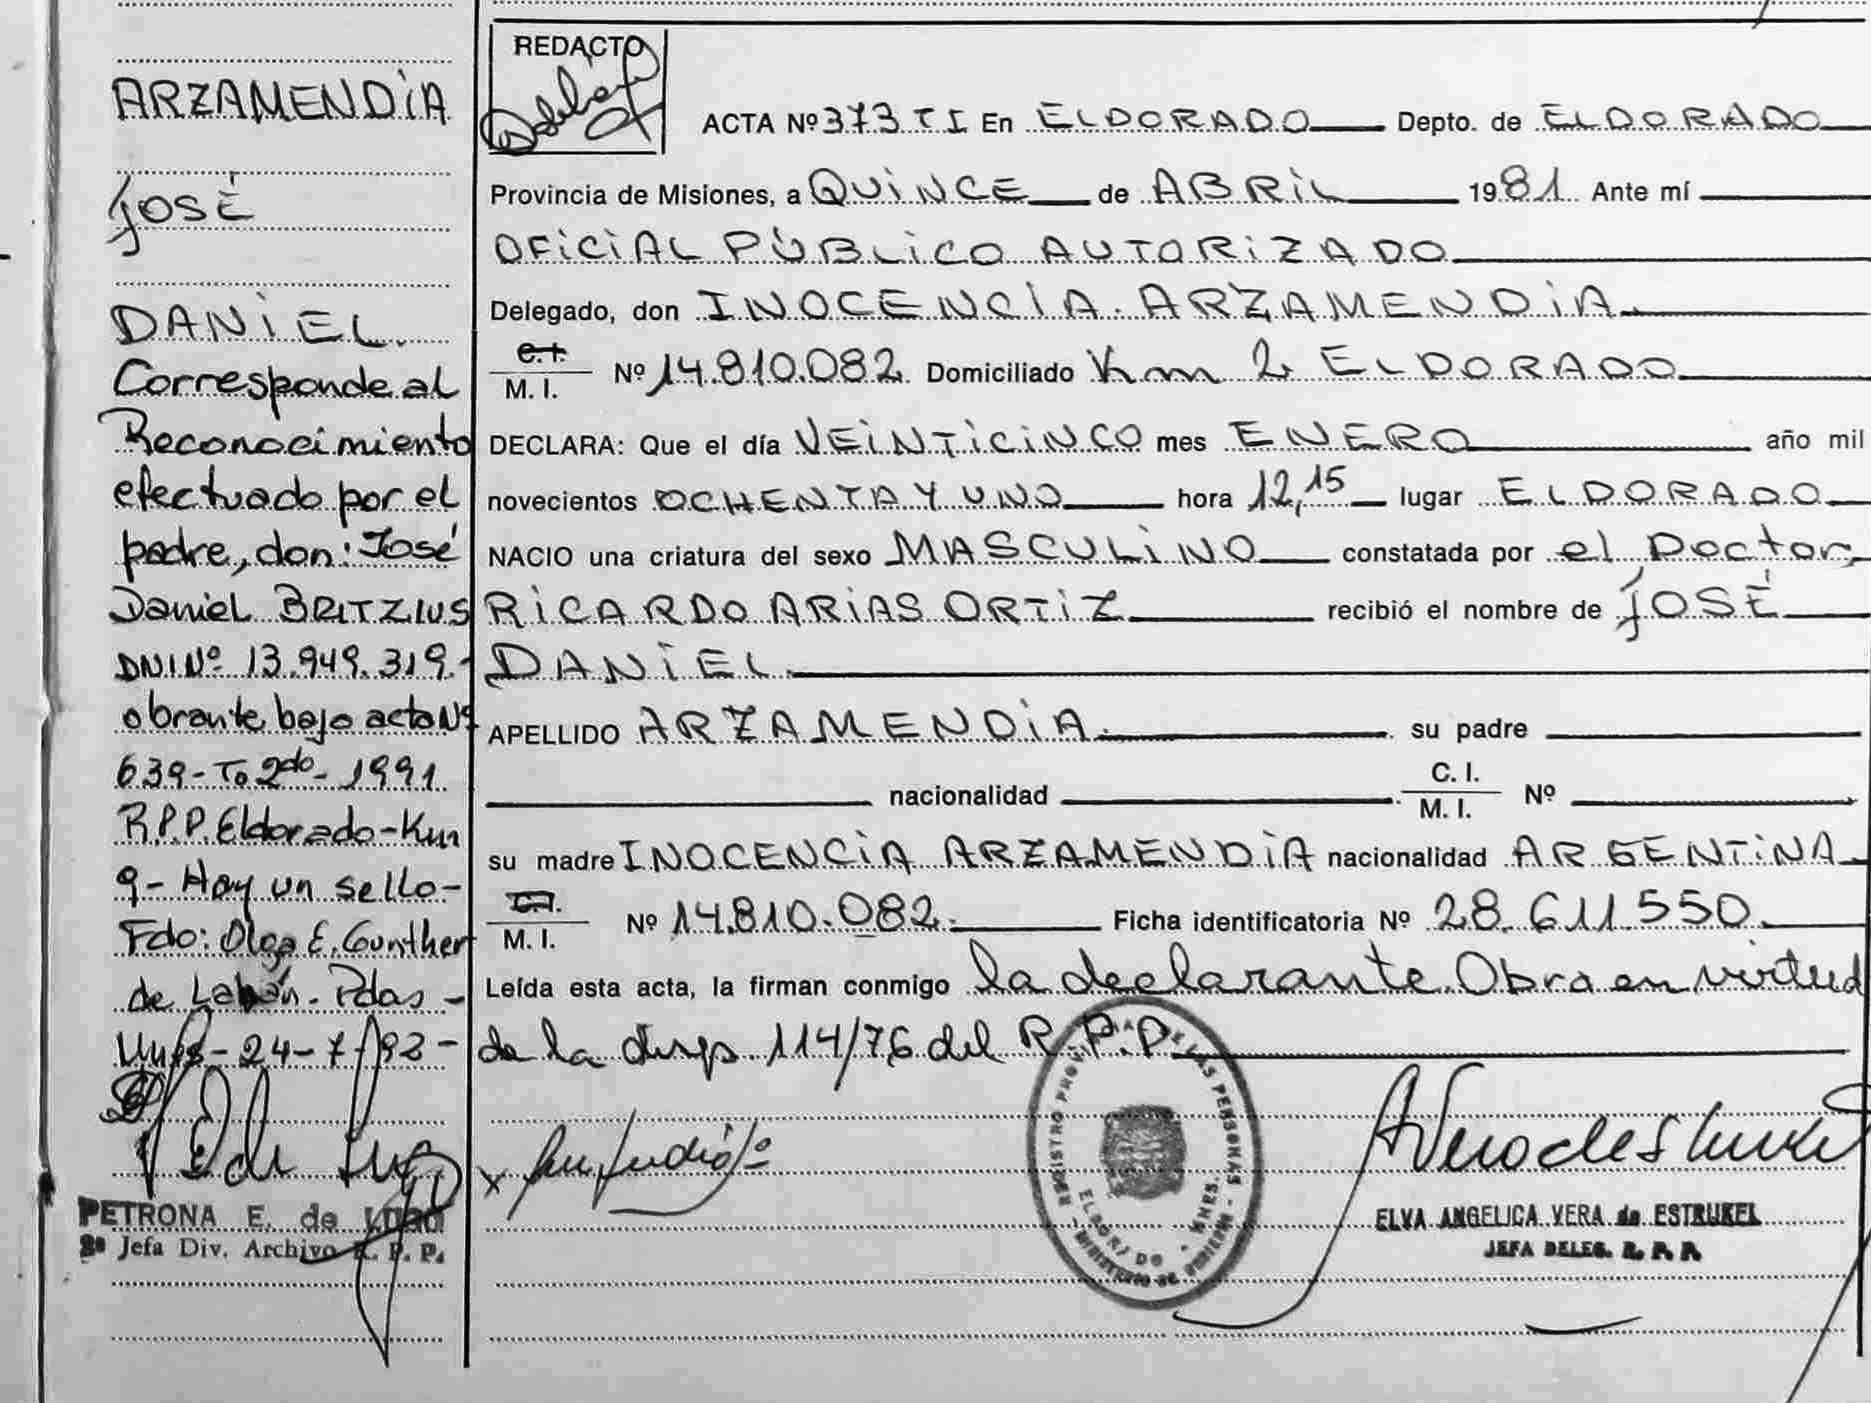 ARZAMENDIA
JOSÉ
DANIEL.
Corresponde al
Reconocimiento
efectuado por el
padre, don: José
Daniel BRITZIUS
DNI Nº 13.949.319.-
obrante bajo acta Nº
639-Tº 2do- 1991
R.P.P. Eldorado-Km
9- Hay un sello-
Fdo: Olga E. Gunther
de Labán. Pdas-
24-7-92-
PETRONA E. de
2º Jefa Div. Archivo R. P. P.
REDACTO
ACTA Nº 373 T I En ELDORADO Depto. de ELDORADO
Provincia de Misiones, a QUINCE de ABRIL 1981. Ante mí
OFICIAL PÚBLICO AUTORIZADO
Delegado, don INOCENCIA ARZAMENDIA
C. I.
M. I. Nº 14.810.082 Domiciliado Km 2 ELDORADO
DECLARA: Que el día VEINTICINCO mes ENERO año mil
novecientos OCHENTA Y UNO hora 12,15 lugar ELDORADO
NACIO una criatura del sexo MASCULINO constatada por el Doctor
RICARDO ARIAS ORTIZ recibió el nombre de JOSÉ
DANIEL
APELLIDO ARZAMENDIA su padre
nacionalidad C. I. M. I. Nº
su madre INOCENCIA ARZAMENDIA nacionalidad ARGENTINA
C. I.
M. I. Nº 14.810.082. Ficha identificatoria Nº 28.611.550.
Leída esta acta, la firman conmigo la declarante. Obra en virtud
de la disp. 114/76 del R.P.P.
REGISTRO PROV DE LAS PERSONAS
ELDORADO - MNES.
ELVA ANGELICA VERA de ESTRUKEL
JEFA DELEG. R. P. P.